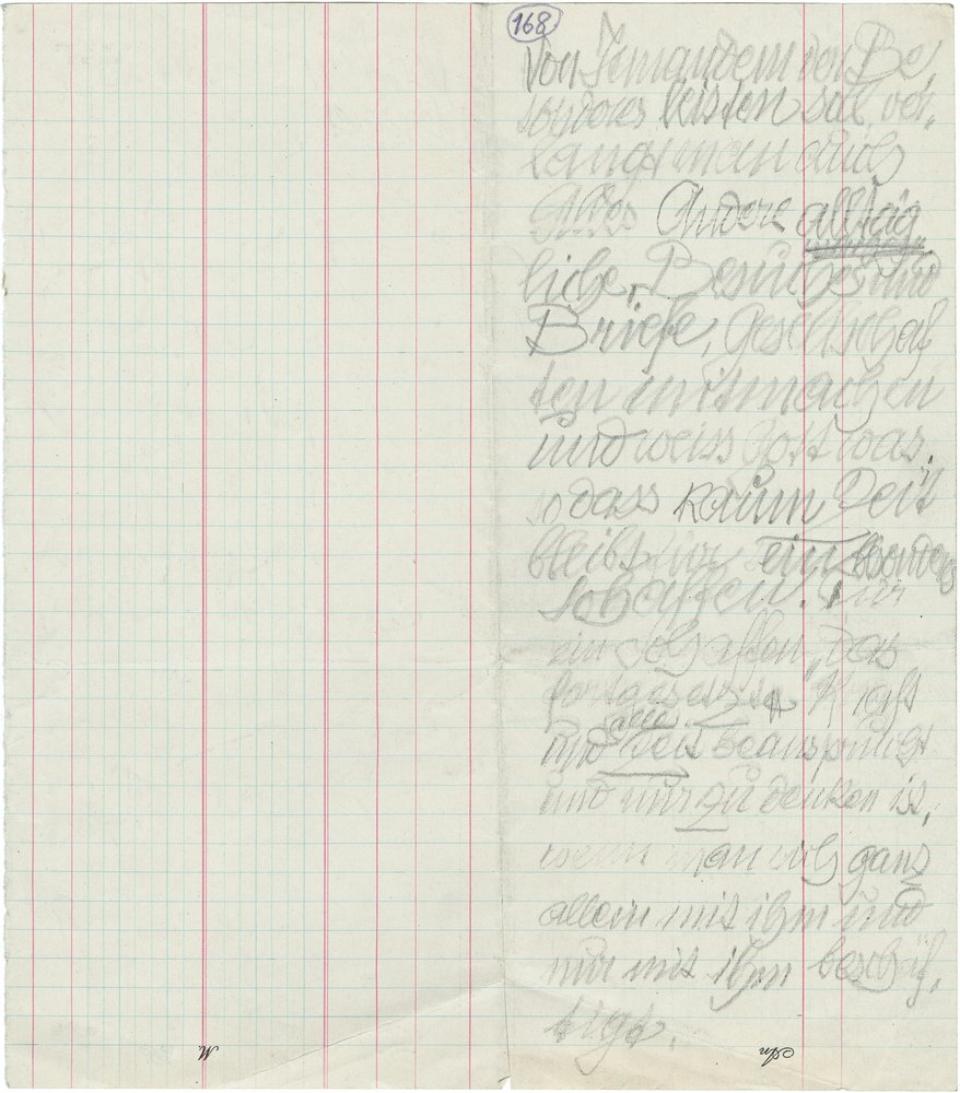 168
Von Jemandem der Be„
sonderes leisten soll, ver„
langt man auch
Alles Andere alltäg„
liche, Besuche und
Briefe, Gesellschaf
ten mitmachen
und weiss Gott was,
so dass kaum Zeit
bleibt für ein besonderes
Schaffen! Für
ein Schaffen, „das
fortgesetzt Kraft
alle
und Zeit beansprucht
und nur zu denken ist,
wenn man sich ganz
allein mit ihm und
nur mit ihm beschäf„
tigt.
M.
An